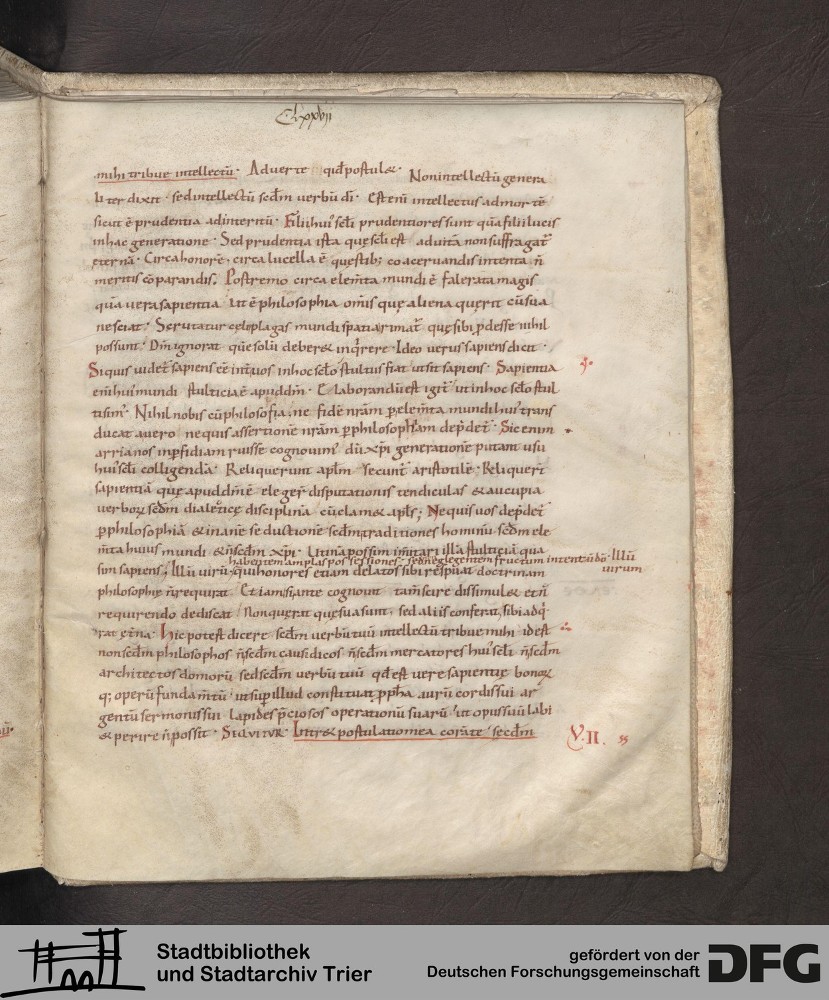 Clxxvii
mihi tribue intellectū. Adverte qid postul&. Non intellectū genera
liter dixit. sed intellectū scdm verbū di. Est enī intellectus ad mortē
sicut ē prudentia ad interitū. Filii hui' scli prudentiores sunt quā filii lucis
in hac generatione. Sed prudentia ista quę scli est ad vitā non suffragat
ęternā. Circa honorē, circa lucella ē quęstib; coacervandis intenta n̄
meritis cōparandis. Postremo circa elemta mundi ē falerata magis
quā vera sapientia ut ē philosophia om̄is quę aliena quęrit cū sua
nesciat. Scrutatur cęli plagas mundi spatia rimat quę sibi pdesse nihil
possunt. Dm ignorat quē solū deber& inqrere. Ideo verus sapiens dicit.
Siquis videt sapiens eē int vos in hoc sclo stultus fiat ut sit sapiens. Sapientia
enī hui' mundi stulticia ē apud dm. Elaborandū est igit ut in hoc sclo stul
tissim'. Nihil nobis cū philosofia, ne fidē nrām p elemta mundi hui' trans
ducat a vero nequis assertionē nrām p philosophiam depdet. Sic enim
arrianos in pfidiam ruisse cognovim' dū xpi generationē putant usu
hui' scli colligendā. Reliquerunt aplm secunt aristotilē. Reliquert
sapientiā quę apud dm ē elegert disputationis tendiculas & aucupia
verboꝝ scdm dialeticę disciplinā cū clam& apls; Nequis vos depdet
p philosophiā & inanē seductionē scdm traditiones hominū scdm ele
mta huius mundi & n̄ scdm xpi. Utinā possim imitari illā stulticiā qua
habentem amplas possessiones. sed neglegentem fructum intentū do. Illū
virum
sim sapiens. Illū virū qui honores etiam delatos sibi respuat doctrinam
philosophię n̄ requirat. Etiam si ante cognovit tam scire dissimul& et n̄
requirendo dediscat. Non quęrat quę sua sunt, sed aliis conferat, sibi adq
rat ętna. Hic potest dicere scdm verbū tuū intellectū tribue mihi id est
non scdm philosophos n̄ scdm causidicos n̄ scdm mercatores hui' scli n̄ scdm
architectos domorū sed scdm verbū tuū qd est vere sapientię bonoꝝ
q; operū fundamtū ut sup illud constituat ppha aurū cordis sui ar
gentū sermonis sui lapides pciosos operationū suarū ut opus suū labi
& perire n̄ possit. Sequitur. Intr& postulatio mea corā te secdm
VII.
Stadtbibliothek
und Stadtarchiv Trier
gefördert von der
Deutschen Forschungsgemeinschaft
DFG